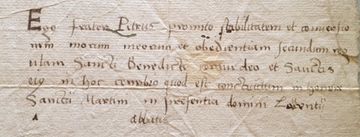 Ego frater Petrus promitto stabilitatem et conversio
nem morum meorum et obedientiam secundum reg
ulam Sancti Benedicti coram deo et Sanctis
eius in hoc cenobio quod est constructum in honore
Sancti Martini in presentia domini Laurentii
abbatis